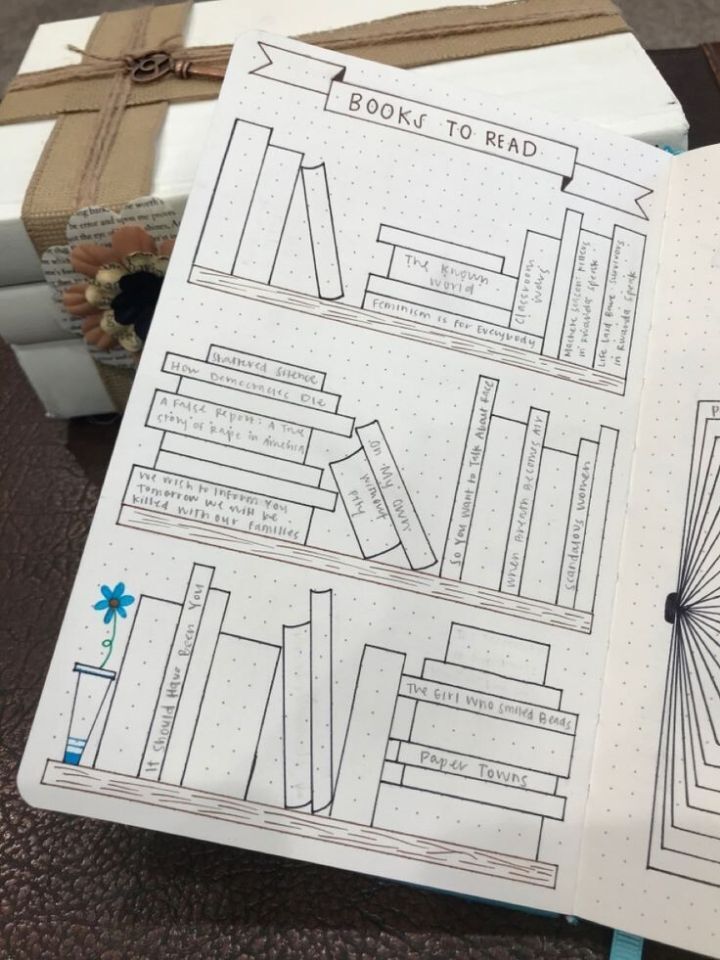 BOOKS TO READ
The Known
World
Feminism is for Everybody
Classroom
Wars
Machete Season: Killers
in Rwanda Speak
Life Laid Bare: Survivors
in Rwanda Speak
Shattered Silence
How Democracies Die
A False Report: A True
Story of Rape in America
We Wish to Inform You
Tomorrow We will be
killed with our Families
Without
Pity
On My Own
So You Want to Talk About Race
When Breath Becomes Air
Scandalous Women
It Should Have Been You
The Girl Who Smiled Beads
Paper Towns
P